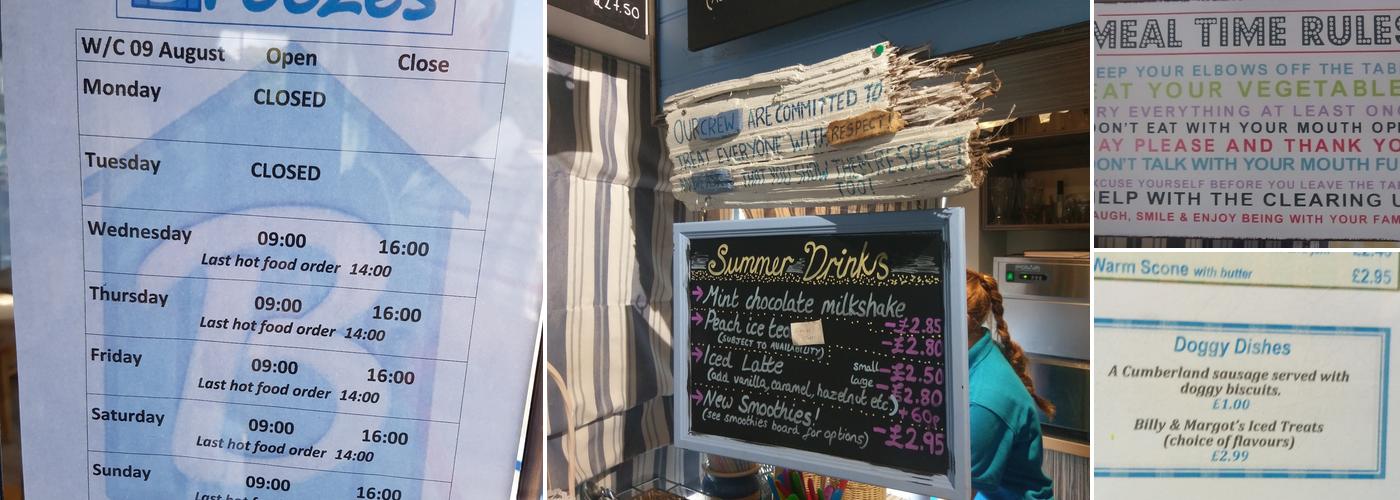 W/C 09 August Open Close
Monday CLOSED
Tuesday CLOSED
Wednesday 09:00 16:00
Last hot food order 14:00
Thursday 09:00 16:00
Last hot food order 14:00
Friday 09:00 16:00
Last hot food order 14:00
Saturday 09:00 16:00
Last hot food order 14:00
Sunday 09:00 16:00
Last hot
£27.50
OUR CREW ARE COMMITTED TO
TREAT EVERYONE WITH RESPECT!
THAT YOU SHOW THEM RESPECT
TOO!
Summer Drinks
Mint chocolate milkshake
-£2.85
Peach ice tea
(SUBJECT TO AVAILABILITY) -£2.80
Iced Latte small -£2.50
large £2.80
(add vanilla, caramel, hazelnut etc) +60p
New Smoothies!
(see smoothies board for options) -£2.95
MEAL TIME RULES
EEP YOUR ELBOWS OFF THE TAB
EAT YOUR VEGETABLE
RY EVERYTHING AT LEAST ON
DON'T EAT WITH YOUR MOUTH OP
AY PLEASE AND THANK YO
DON'T TALK WITH YOUR MOUTH FU
XCUSE YOURSELF BEFORE YOU LEAVE THE TA
ELP WITH THE CLEARING U
AUGH, SMILE & ENJOY BEING WITH YOUR FAM
Warm Scone with butter £2.95
Doggy Dishes
A Cumberland sausage served with
doggy biscuits.
£1.00
Billy & Margot's Iced Treats
(choice of flavours)
£2.99